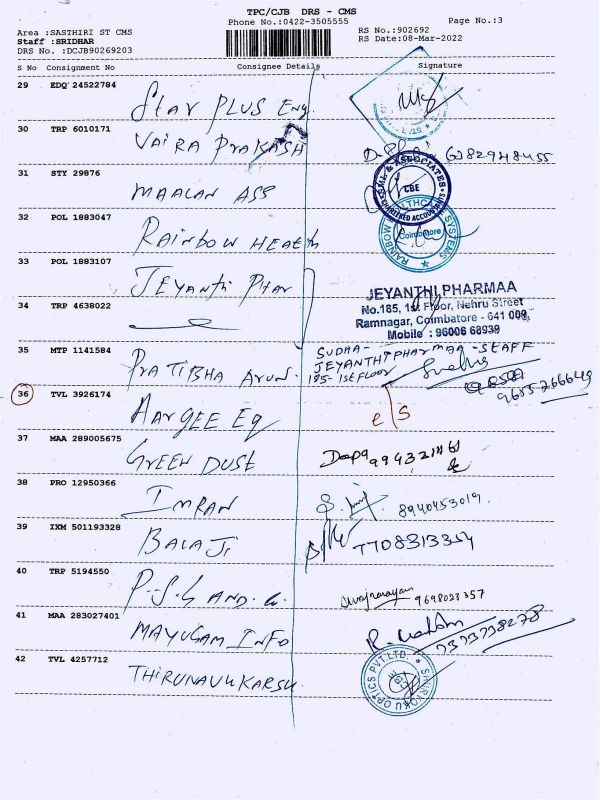 TPC/CJB DRS - CMS
Phone No.:0422-3505555
Page No.:3
Area :SASTHIRI ST CMS
RS No.:902692
Staff :SRIDHAR
RS Date:08-Mar-2022
DRS No. :DCJB90269203
S No Consignment No Consignee Details Signature
29 EDQ 24522784
Star PLUS Eng.
30 TRP 6010171
VAIRA PRAKASH
31 STY 29876
MAALAN ASS
CBE
CHARTERED ACCOUNTANTS
32 POL 1883047
RAINBOW HEALTH
Coimbatore
33 POL 1883107
JEYANTHI PHAR
JEYANTHI PHARMAA
No.185, 1st Floor, Nehru Street
Ramnagar, Coimbatore - 641 009.
Mobile : 96006 68939
34 TRP 4638022
35 MTP 1141584
PRATIBHA ARUN.
SUDHA-
JEYANTHI PHARMAA-STAFF
185-1st FLOOR
Sudha
36 TVL 3926174
AARGEE Eq
37 MAA 289005675
GREEN DUST
Deepa
38 PRO 12950366
IMRAN
8940453019.
39 IXM 501193328
BALAJI
7708313354
40 TRP 5194550
P.S.G AND. Co.
9698023357
41 MAA 283027401
MAYUGAM INFO
42 TVL 4257712
THIRUNAVUKARSU.
OPTICS PVT.LTD.